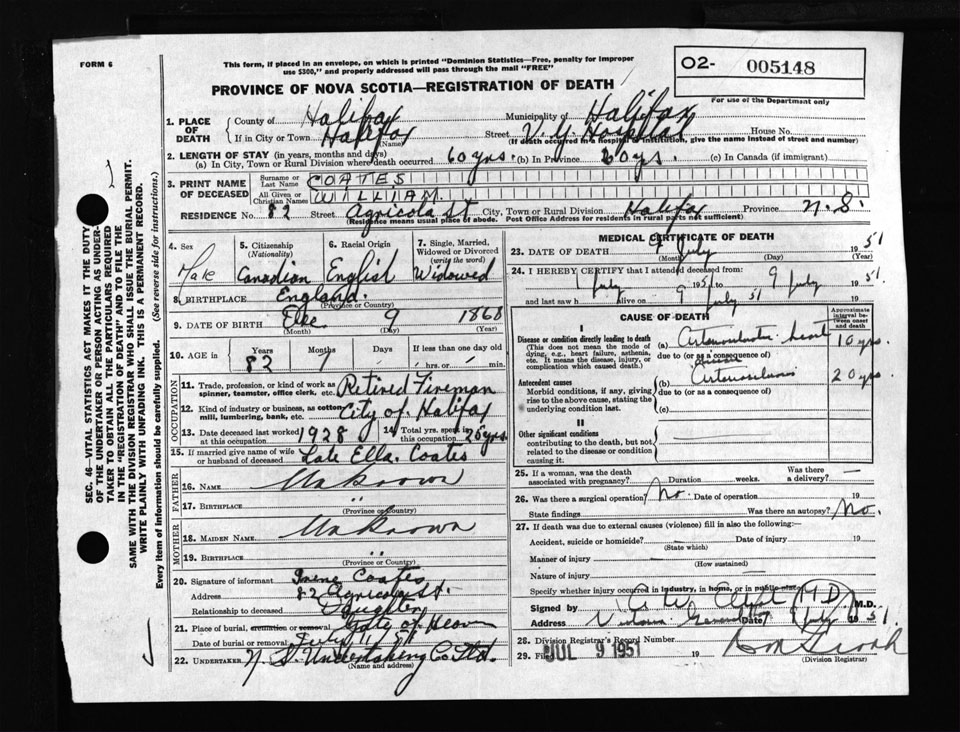 FORM 6
This form, if placed in an envelope, on which is printed "Dominion Statistics—Free, penalty for improper
use $300," and properly addressed will pass through the mail "FREE"
O2- 005148
For use of the Department only
PROVINCE OF NOVA SCOTIA—REGISTRATION OF DEATH
1. PLACE OF DEATH
County of Halifax Municipality of Halifax
If in City or Town Halifax (Name) Street V. G. Hospital House No.
(If death occurred in a hospital or institution, give the name instead of street and number)
2. LENGTH OF STAY (in years, months and days)
(a) In City, Town or Rural Division where death occurred 60 yrs. (b) In Province 60 yrs. (c) In Canada (if immigrant)
3. PRINT NAME OF DECEASED
Surname or Last Name COATES
All Given or Christian Names WILLIAM.
RESIDENCE No. 82 Street Agricola St City, Town or Rural Division Halifax Province N.S.
(Residence means usual place of abode. Post Office Address for residents in rural parts not sufficient)
4. Sex Male
5. Citizenship (Nationality) Canadian
6. Racial Origin English
7. Single, Married, Widowed or Divorced (write the word) Widowed
8. BIRTHPLACE England.
(Province or Country)
9. DATE OF BIRTH Dec 9 1868
(Month) (Day) (Year)
10. AGE in Years Months Days If less than one day old
82 7 hrs. or min.
OCCUPATION
11. Trade, profession, or kind of work as spinner, teamster, office clerk, etc. Retired Fireman
12. Kind of industry or business, as cotton mill, lumbering, bank, etc. City of Halifax
13. Date deceased last worked at this occupation 1928
14. Total yrs. spent in this occupation 25 yrs.
15. If married give name of wife or husband of deceased Late Ella Coates
FATHER
16. NAME Unknown
17. BIRTHPLACE "
(Province or Country)
MOTHER
18. MAIDEN NAME Unknown
19. BIRTHPLACE "
(Province or Country)
20. Signature of informant Irene Coates
Address 82 Agricola St.
Relationship to deceased Daughter
21. Place of burial, cremation or removal Gate of Heaven
Date of burial or removal July 11, 51
22. UNDERTAKER N. S. Undertaking Co Ltd.
(Name and address)
MEDICAL CERTIFICATE OF DEATH
23. DATE OF DEATH 9 July 1951
(Month) (Day) (Year)
24. I HEREBY CERTIFY that I attended deceased from:
1 July 1951 to 9 July 1951
and last saw h alive on 9 July 51 19
CAUSE OF DEATH
Approximate interval between onset and death
I
Disease or condition directly leading to death
(This does not mean the mode of dying, e.g., heart failure, asthenia, etc. It means the disease, injury, or complication which caused death.)
(a) Arteriosclerotic heart disease 10 yrs.
due to (or as a consequence of)
Antecedent causes
Morbid conditions, if any, giving rise to the above cause, stating the underlying condition last.
(b) Arteriosclerosis 20 yrs.
due to (or as a consequence of)
(c)
II
Other significant conditions
contributing to the death, but not related to the disease or condition causing it.
25. If a woman, was the death associated with pregnancy? Duration weeks. Was there a delivery? —
26. Was there a surgical operation? No. Date of operation 19
State findings Was there an autopsy? No.
27. If death was due to external causes (violence) fill in also the following:—
Accident, suicide or homicide? Date of injury 19
(State which)
Manner of injury
(How sustained)
Nature of injury
Specify whether injury occurred in industry, in home, or in public place
Signed by M.D. M.D.
Address Victoria General Date 9 July 1951
28. Division Registrar's Record Number
29. Filed JUL 9 1951 19
(Division Registrar)
SEC. 46—VITAL STATISTICS ACT MAKES IT THE DUTY
OF THE UNDERTAKER OR PERSON ACTING AS UNDER-
TAKER TO OBTAIN ALL THE PARTICULARS REQUIRED
IN THE "REGISTRATION OF DEATH" AND TO FILE THE
SAME WITH THE DIVISION REGISTRAR WHO SHALL ISSUE THE BURIAL PERMIT.
WRITE PLAINLY WITH UNFADING INK. THIS IS A PERMANENT RECORD.
Every item of information should be carefully supplied. (See reverse side for instructions.)